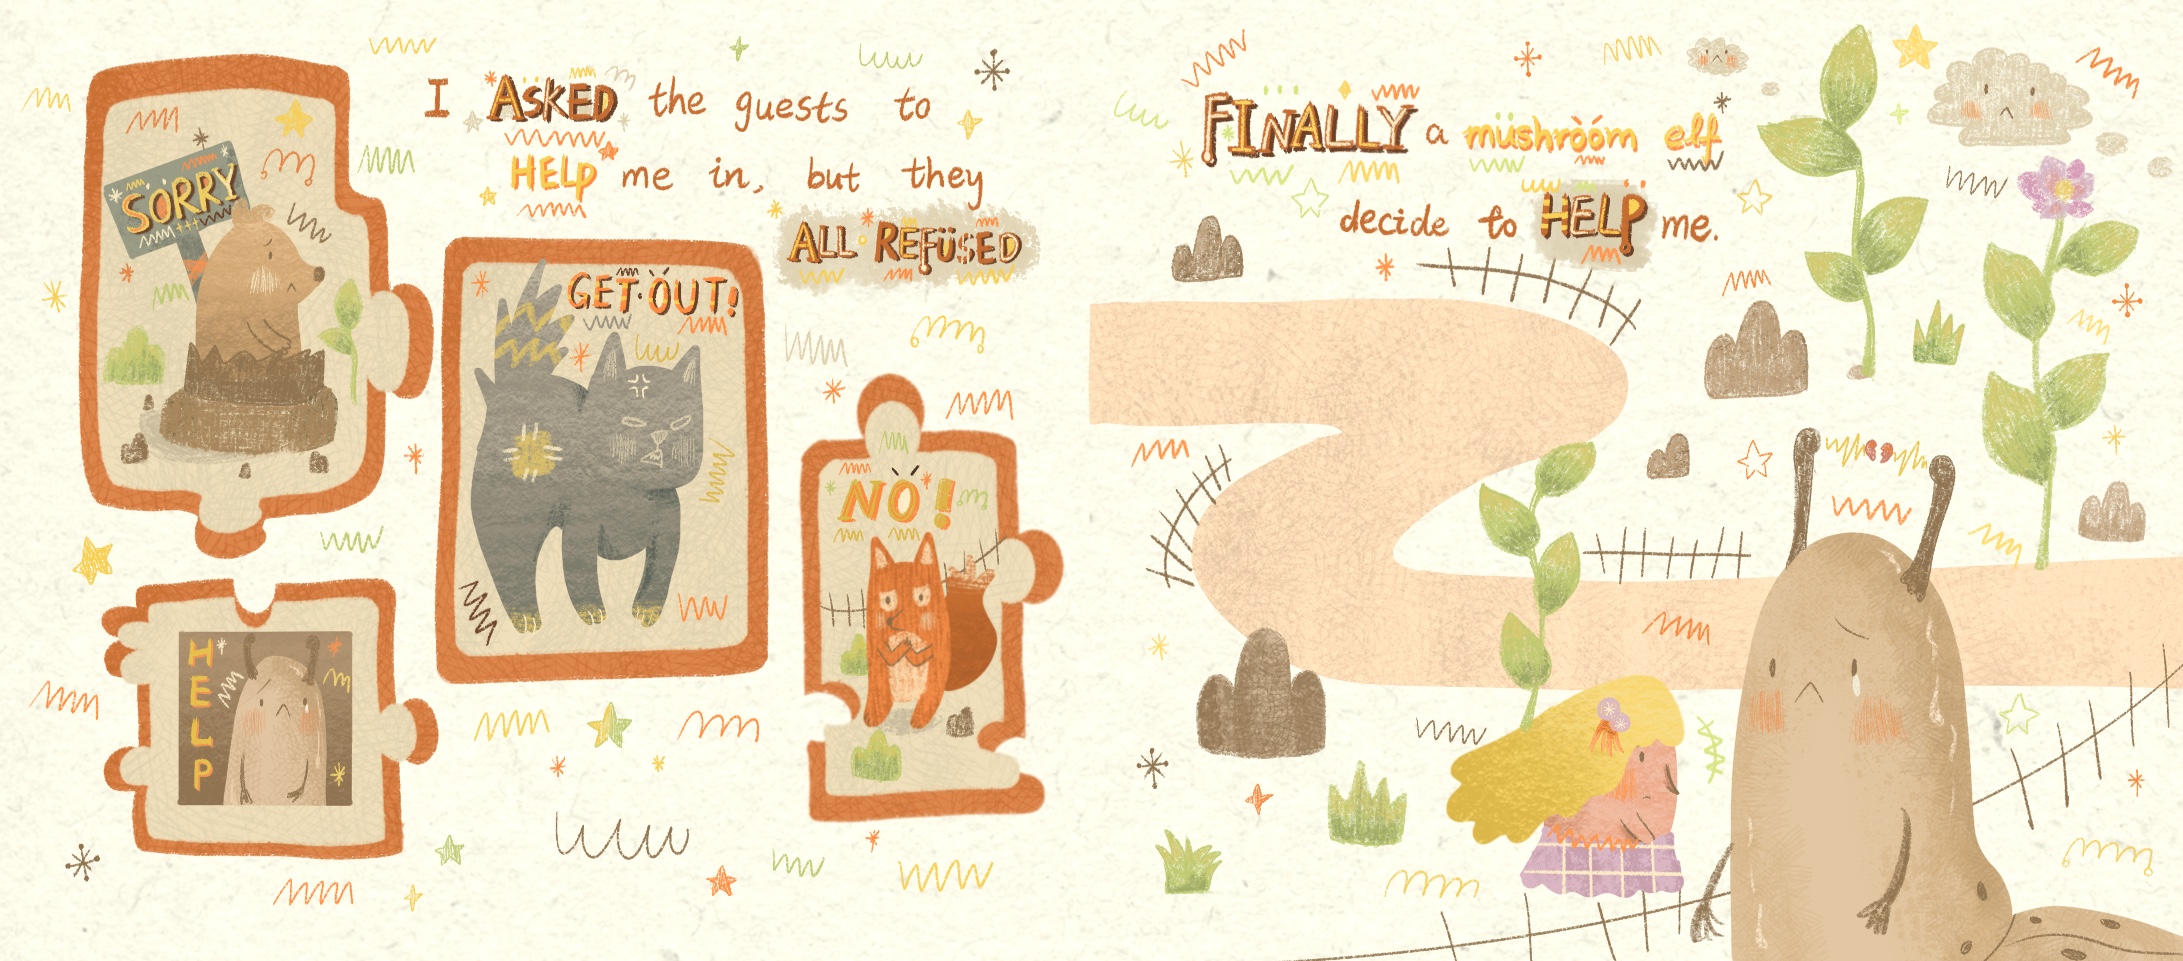 I ASKED the guests to
HELP me in, but they
ALL REFUSED
SORRY
GET OUT!
NO!
HELP
FINALLY a mushroom elf
decide to HELP me.